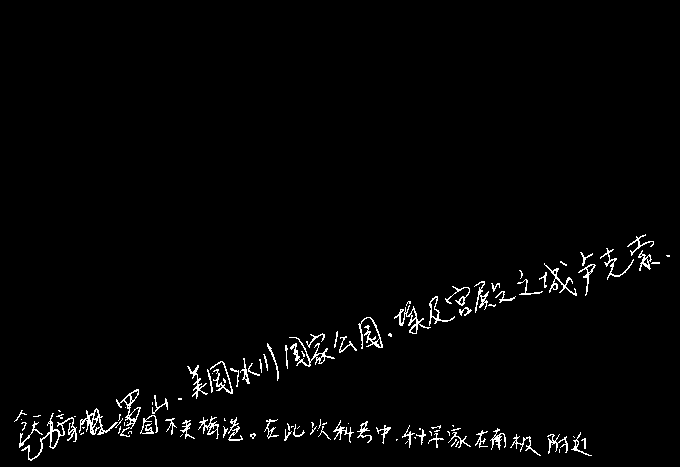 山、美国冰川国家公园、埃及宫殿之城卢克索、
不来梅港。在此次科考中，科学家在南极附近